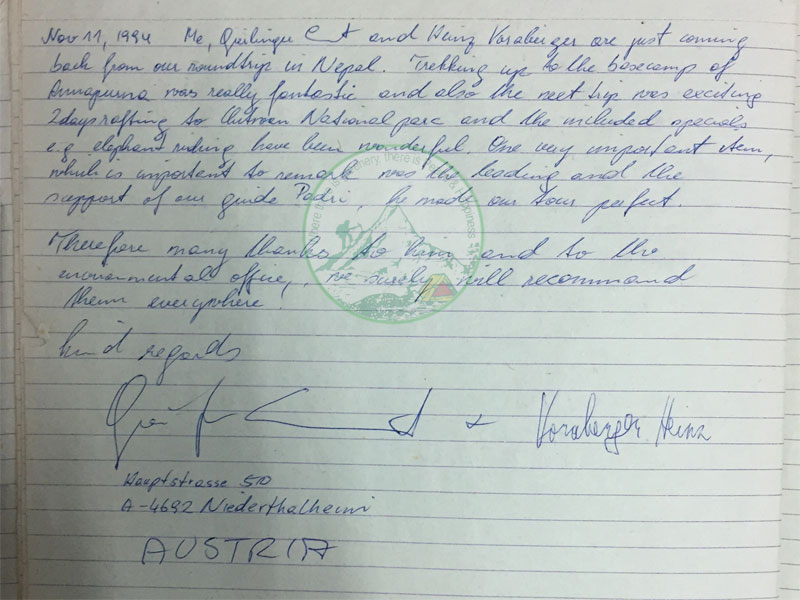 Nov 11, 1994 Me, and Heinz Voraberger are just coming
back from our roundtrip in Nepal. Trekking up to the basecamp of
Annapurna was really fantastic and also the next trip was exciting
2days rafting to Chitwan National parc and the included specials
e.g elephant riding have been wonderful. One very important item,
which is important to remark was the leading and the
support of our guide Padri, he made our tour perfect.
Therefore many thanks to him and to the
environmental office, we surely will recommand
them everywhere.
kind regards
+ Voraberger Heinz
Hauptstrasse 50
A-4692 Niederthalheim
AUSTRIA
there is